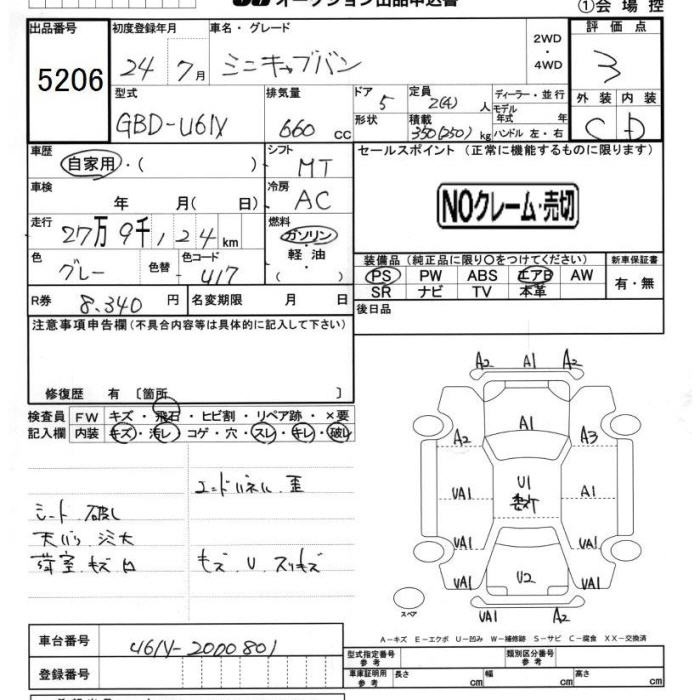 オークション出品申込書
①会場控
出品番号 初度登録年月 車名・グレード 評価点
5206 24年7月 ミニキャブバン 2WD・4WD 3
型式 排気量 ドア 定員 ディーラー・並行 外装 内装
GBD-U61V 660cc 5 2(4)人 モデル年式 年 C D
形状 積載 350(250)kg ハンドル 左・右
車歴 自家用・( ) シフト MT セールスポイント (正常に機能するものに限ります)
車検 年 月( 日) 冷房 AC
NOクレーム・売切
走行 27万9千124km 燃料 ガソリン・軽油 ( )
装備品(純正品に限り○をつけてください) 新車保証書
色 グレー 色替 色コード U17 PS PW ABS エアB AW 有・無
SR ナビ TV 本革
R券 8,340円 名変期限 月 日 後日品
注意事項申告欄(不具合内容等は具体的に記入して下さい)
修復歴 有 〔箇所 〕
検査員 FW キズ・飛石・ヒビ割・リペア跡・×要
記入欄 内装 キズ・汚レ・コゲ・穴・スレ・キレ・破レ
エンドパネル 歪
シート 破レ
天バリ 汚大
荷室 キズ 凹 キズ U スリキズ
A2 A1 A2
A2 A1 A3
VA1 U1 A1
VA1 VA1
VA1 U2 VA1
スペア VA1 A2
A-キズ E-エクボ U-凹み W-補修跡 S-サビ C-腐食 XX-交換済
車台番号 U61V-2000801
型式指定番号 参考 類別区分番号 参考
登録番号 車庫証明用 参考 長さ cm 幅 cm 高さ cm